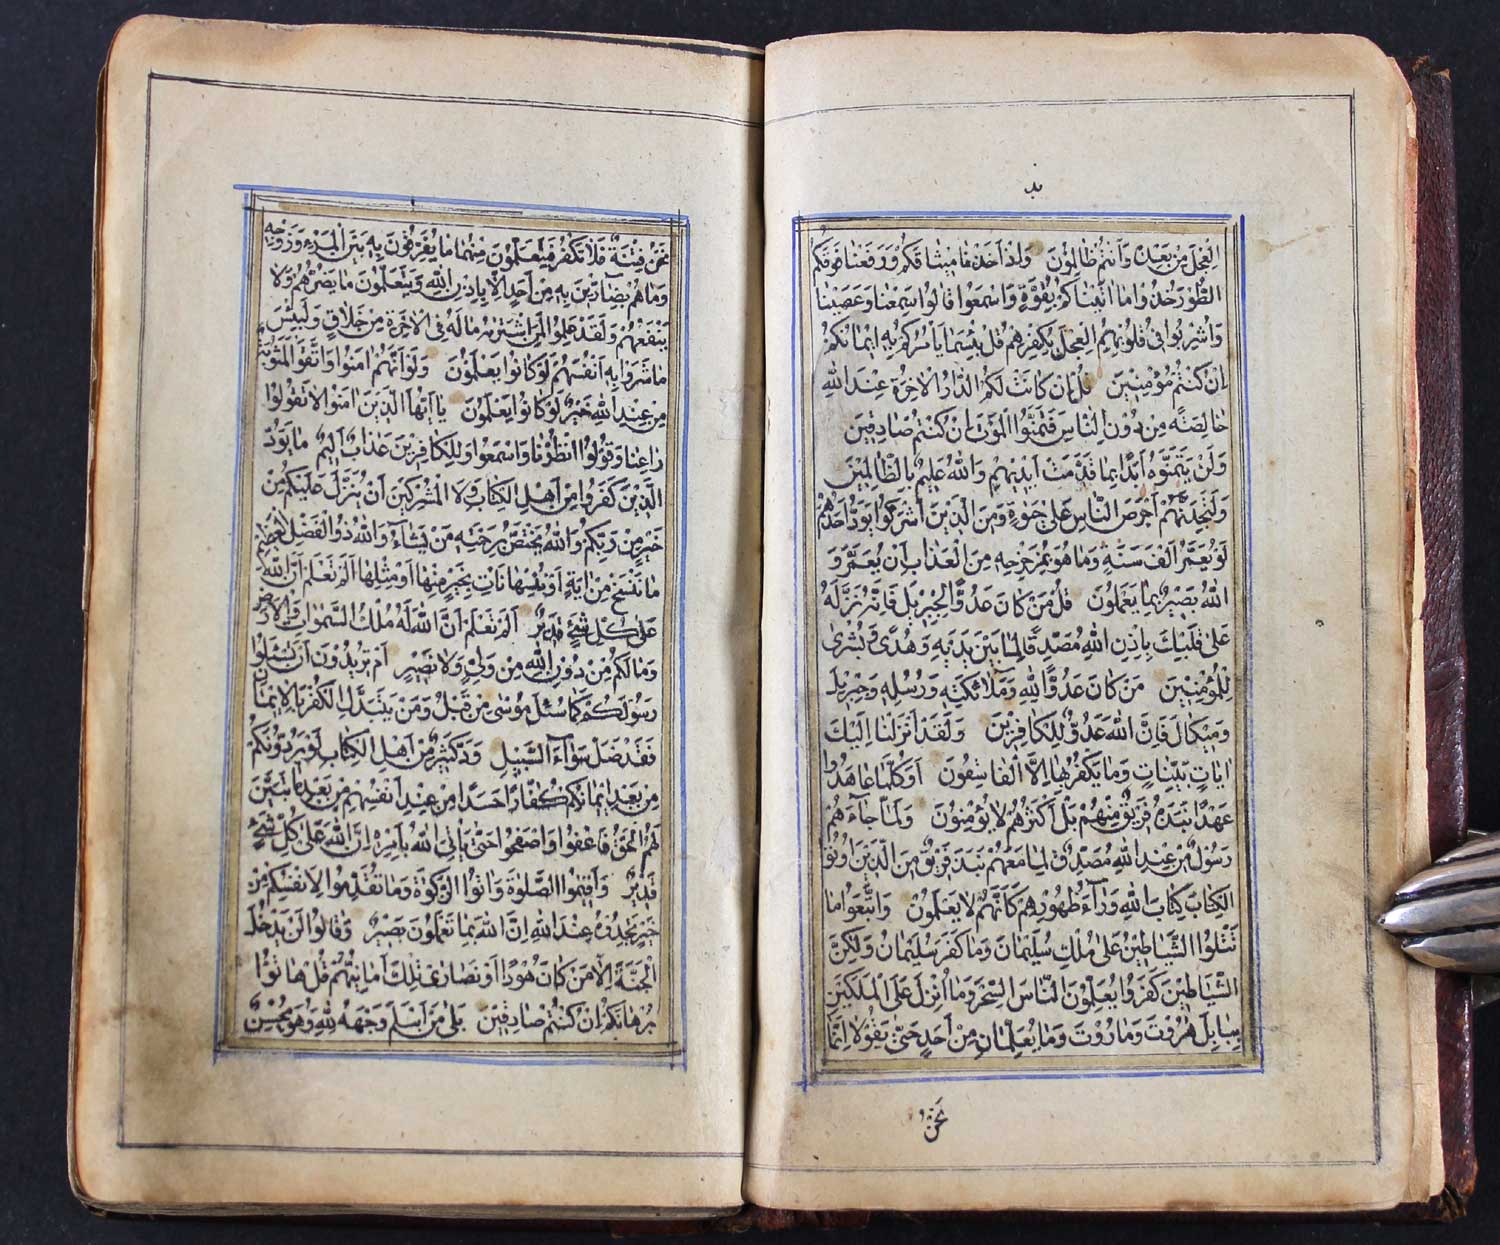 بد
الْعِجْلَ مِنْ بَعْدِهِ وَأَنْتُمْ ظَالِمُونَ وَإِذْ أَخَذْنَا مِيثَاقَكُمْ وَرَفَعْنَا فَوْقَكُمُ
الطُّورَ خُذُوا مَا آتَيْنَاكُمْ بِقُوَّةٍ وَاسْمَعُوا قَالُوا سَمِعْنَا وَعَصَيْنَا
وَأُشْرِبُوا فِي قُلُوبِهِمُ الْعِجْلَ بِكُفْرِهِمْ قُلْ بِئْسَمَا يَأْمُرُكُمْ بِهِ إِيمَانُكُمْ
إِنْ كُنْتُمْ مُؤْمِنِينَ قُلْ إِنْ كَانَتْ لَكُمُ الدَّارُ الْآخِرَةُ عِنْدَ اللَّهِ
خَالِصَةً مِنْ دُونِ النَّاسِ فَتَمَنَّوُا الْمَوْتَ إِنْ كُنْتُمْ صَادِقِينَ
وَلَنْ يَتَمَنَّوْهُ أَبَدًا بِمَا قَدَّمَتْ أَيْدِيهِمْ وَاللَّهُ عَلِيمٌ بِالظَّالِمِينَ
وَلَتَجِدَنَّهُمْ أَحْرَصَ النَّاسِ عَلَى حَيٰوةٍ وَمِنَ الَّذِينَ أَشْرَكُوا يَوَدُّ أَحَدُهُمْ
لَوْ يُعَمَّرُ أَلْفَ سَنَةٍ وَمَا هُوَ بِمُزَحْزِحِهِ مِنَ الْعَذَابِ أَنْ يُعَمَّرَ وَ
اللَّهُ بَصِيرٌ بِمَا يَعْمَلُونَ قُلْ مَنْ كَانَ عَدُوًّا لِجِبْرِيلَ فَإِنَّهُ نَزَّلَهُ
عَلَى قَلْبِكَ بِإِذْنِ اللَّهِ مُصَدِّقًا لِمَا بَيْنَ يَدَيْهِ وَهُدًى وَبُشْرَى
لِلْمُؤْمِنِينَ مَنْ كَانَ عَدُوًّا لِلَّهِ وَمَلَائِكَتِهِ وَرُسُلِهِ وَجِبْرِيلَ
وَمِيكَالَ فَإِنَّ اللَّهَ عَدُوٌّ لِلْكَافِرِينَ وَلَقَدْ أَنْزَلْنَا إِلَيْكَ
آيَاتٍ بَيِّنَاتٍ وَمَا يَكْفُرُ بِهَا إِلَّا الْفَاسِقُونَ أَوَكُلَّمَا عَاهَدُوا
عَهْدًا نَبَذَهُ فَرِيقٌ مِنْهُمْ بَلْ أَكْثَرُهُمْ لَا يُؤْمِنُونَ وَلَمَّا جَاءَهُمْ
رَسُولٌ مِنْ عِنْدِ اللَّهِ مُصَدِّقٌ لِمَا مَعَهُمْ نَبَذَ فَرِيقٌ مِنَ الَّذِينَ أُوتُوا
الْكِتَابَ كِتَابَ اللَّهِ وَرَاءَ ظُهُورِهِمْ كَأَنَّهُمْ لَا يَعْلَمُونَ وَاتَّبَعُوا مَا
تَتْلُوا الشَّيَاطِينُ عَلَى مُلْكِ سُلَيْمَانَ وَمَا كَفَرَ سُلَيْمَانُ وَلٰكِنَّ
الشَّيَاطِينَ كَفَرُوا يُعَلِّمُونَ النَّاسَ السِّحْرَ وَمَا أُنْزِلَ عَلَى الْمَلَكَيْنِ
بِبَابِلَ هَارُوتَ وَمَارُوتَ وَمَا يُعَلِّمَانِ مِنْ أَحَدٍ حَتَّى يَقُولَا إِنَّمَا
نَحْنُ
نَحْنُ فِتْنَةٌ فَلَا تَكْفُرْ فَيَتَعَلَّمُونَ مِنْهُمَا مَا يُفَرِّقُونَ بِهِ بَيْنَ الْمَرْءِ وَزَوْجِهِ
وَمَا هُمْ بِضَارِّينَ بِهِ مِنْ أَحَدٍ إِلَّا بِإِذْنِ اللَّهِ وَيَتَعَلَّمُونَ مَا يَضُرُّهُمْ وَلَا
يَنْفَعُهُمْ وَلَقَدْ عَلِمُوا لَمَنِ اشْتَرَاهُ مَا لَهُ فِي الْآخِرَةِ مِنْ خَلَاقٍ وَلَبِئْسَ
مَا شَرَوْا بِهِ أَنْفُسَهُمْ لَوْ كَانُوا يَعْلَمُونَ وَلَوْ أَنَّهُمْ آمَنُوا وَاتَّقَوْا لَمَثُوبَةٌ
مِنْ عِنْدِ اللَّهِ خَيْرٌ لَوْ كَانُوا يَعْلَمُونَ يَا أَيُّهَا الَّذِينَ آمَنُوا لَا تَقُولُوا
رَاعِنَا وَقُولُوا انْظُرْنَا وَاسْمَعُوا وَلِلْكَافِرِينَ عَذَابٌ أَلِيمٌ مَا يَوَدُّ
الَّذِينَ كَفَرُوا مِنْ أَهْلِ الْكِتَابِ وَلَا الْمُشْرِكِينَ أَنْ يُنَزَّلَ عَلَيْكُمْ مِنْ
خَيْرٍ مِنْ رَبِّكُمْ وَاللَّهُ يَخْتَصُّ بِرَحْمَتِهِ مَنْ يَشَاءُ وَاللَّهُ ذُو الْفَضْلِ الْعَظِيمِ
مَا نَنْسَخْ مِنْ آيَةٍ أَوْ نُنْسِهَا نَأْتِ بِخَيْرٍ مِنْهَا أَوْ مِثْلِهَا أَلَمْ تَعْلَمْ أَنَّ اللَّهَ
عَلَى كُلِّ شَيْءٍ قَدِيرٌ أَلَمْ تَعْلَمْ أَنَّ اللَّهَ لَهُ مُلْكُ السَّمٰوَاتِ وَالْأَرْضِ
وَمَا لَكُمْ مِنْ دُونِ اللَّهِ مِنْ وَلِيٍّ وَلَا نَصِيرٍ أَمْ تُرِيدُونَ أَنْ تَسْئَلُوا
رَسُولَكُمْ كَمَا سُئِلَ مُوسَى مِنْ قَبْلُ وَمَنْ يَتَبَدَّلِ الْكُفْرَ بِالْإِيمَانِ
فَقَدْ ضَلَّ سَوَاءَ السَّبِيلِ وَدَّ كَثِيرٌ مِنْ أَهْلِ الْكِتَابِ لَوْ يَرُدُّونَكُمْ
مِنْ بَعْدِ إِيمَانِكُمْ كُفَّارًا حَسَدًا مِنْ عِنْدِ أَنْفُسِهِمْ مِنْ بَعْدِ مَا تَبَيَّنَ
لَهُمُ الْحَقُّ فَاعْفُوا وَاصْفَحُوا حَتَّى يَأْتِيَ اللَّهُ بِأَمْرِهِ إِنَّ اللَّهَ عَلَى كُلِّ شَيْءٍ
قَدِيرٌ وَأَقِيمُوا الصَّلٰوةَ وَآتُوا الزَّكٰوةَ وَمَا تُقَدِّمُوا لِأَنْفُسِكُمْ مِنْ
خَيْرٍ تَجِدُوهُ عِنْدَ اللَّهِ إِنَّ اللَّهَ بِمَا تَعْمَلُونَ بَصِيرٌ وَقَالُوا لَنْ يَدْخُلَ
الْجَنَّةَ إِلَّا مَنْ كَانَ هُودًا أَوْ نَصَارَى تِلْكَ أَمَانِيُّهُمْ قُلْ هَاتُوا
بُرْهَانَكُمْ إِنْ كُنْتُمْ صَادِقِينَ بَلَى مَنْ أَسْلَمَ وَجْهَهُ لِلَّهِ وَهُوَ مُحْسِنٌ